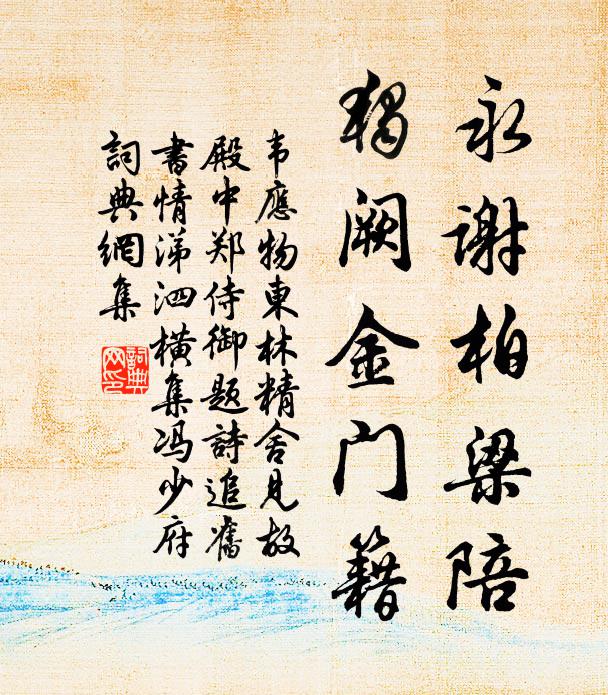 永谢柏梁陪
独阙金门籍
韦應物東林精舍見故
殿中郑侍御題詩追舊
書情涕泗横集冯少府
詞典網集
詞典網印